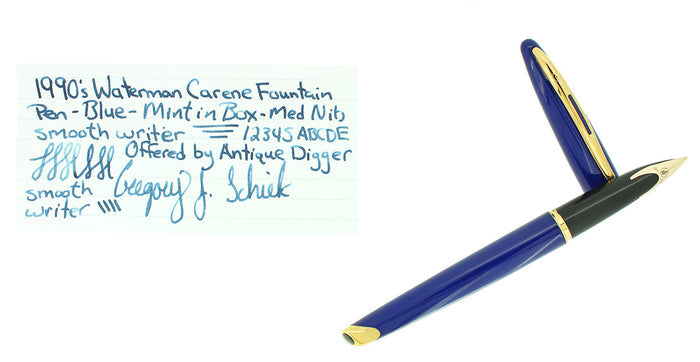 1990's Waterman Carene Fountain
Pen - Blue - Mint in Box - Med Nib
smooth writer 12345 ABCDE
Offered by Antique Digger
smooth Gregory J. Schiek
writer